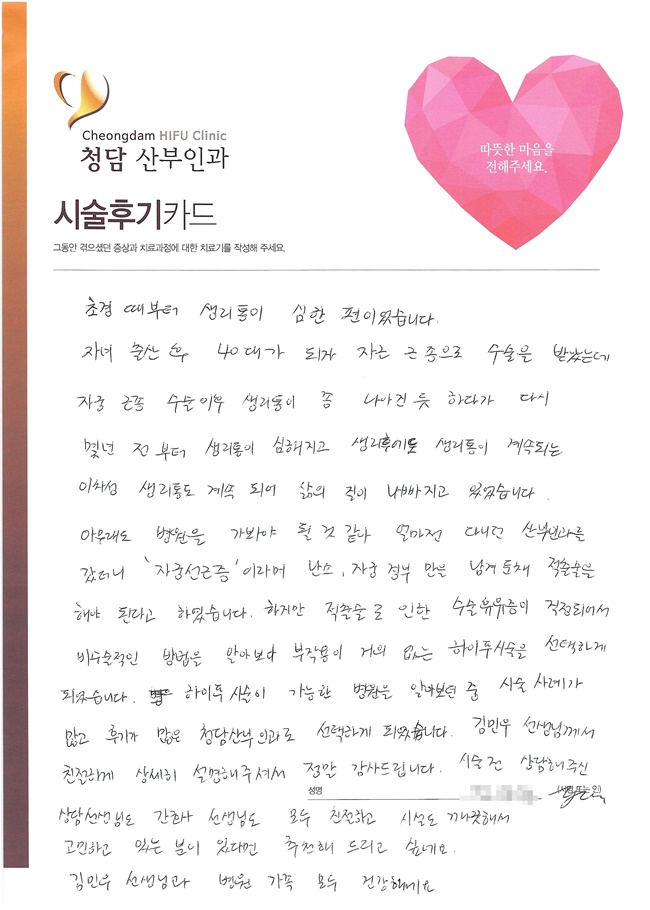 Cheongdam HIFU Clinic
청담 산부인과
따뜻한 마음을
전해주세요.
시술후기카드
그동안 겪으셨던 증상과 치료과정에 대한 치료기를 작성해 주세요.
초경 때부터 생리통이 심한 편이었습니다.
자녀 출산 후 40대가 되자 자궁 근종으로 수술을 받았는데
자궁 근종 수술이후 생리통이 좀 나아진 듯 하다가 다시
몇년 전부터 생리통이 심해지고 생리후에도 생리통이 계속되는
이차성 생리통도 계속 되어 삶의 질이 나빠지고 있었습니다.
아무래도 병원을 가봐야 될 것 같아 얼마전 다니던 산부인과를
갔더니 '자궁선근증'이라며 난소, 자궁경부 만을 남겨둔채 적출술을
해야 된다고 하였습니다. 하지만 적출술로 인한 수술휴유증이 걱정되어서
비수술적인 방법을 알아보다 부작용이 거의 없는 하이푸시술을 선택하게
되었습니다. 하이푸시술이 가능한 병원을 알아보던 중 시술 사례가
많고 후기가 많은 청담산부인과로 선택하게 되었습니다. 김민우 선생님께서
친절하게 상세히 설명해주셔서 정말 감사드립니다. 시술 전 상담해주신
성명
(서명 또는 인)
상담선생님도 간호사 선생님도 모두 친절하고 시설도 깨끗해서
고민하고 있는 분이 있다면 추천해 드리고 싶네요.
김민우 선생님과 병원 가족 모두 건강하세요